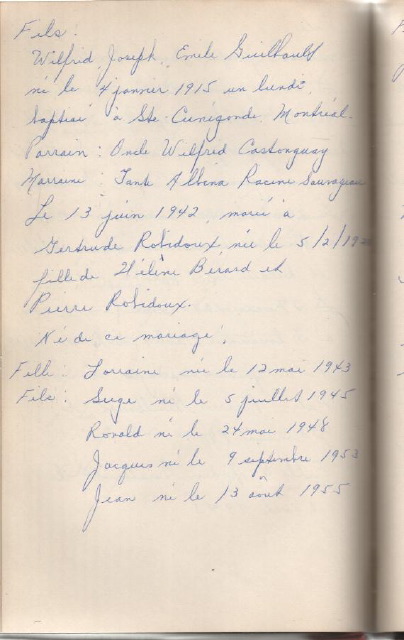 Fils:
Wilfrid, Joseph, Emile Guilbault
né le 4 janvier 1915 un lundi,
baptisé à Ste-Cunégonde, Montréal.
Parrain: Oncle Wilfred Castonguay
Marraine: Tante Albina Racine Sauvageau
Le 13 juin 1942, marié à
Gertrude Robidoux, née le 5/2/19
fille de Hélène Berard et
Pierre Robidoux.
Né de ce mariage,
Fille: Lorraine née le 12 mai 1943
Fils: Serge né le 5 juillet 1945
Ronald né le 24 mai 1948
Jacques né le 9 septembre 1953
Jean né le 13 août 1955